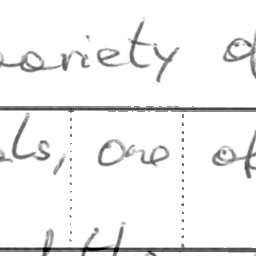 variety of
ls, one of